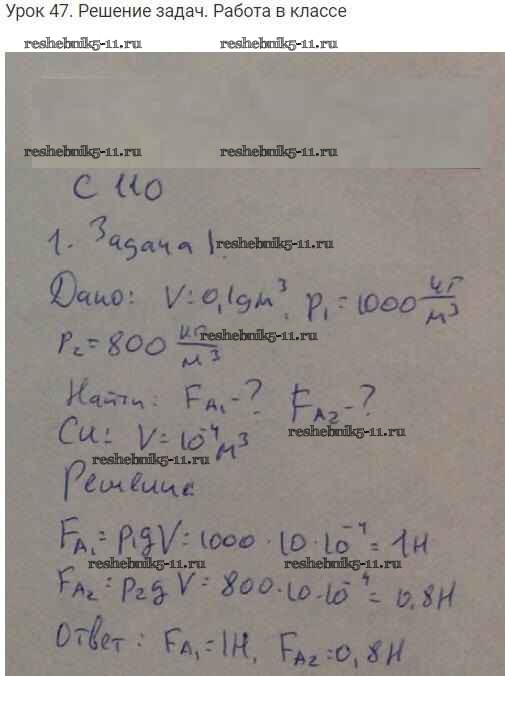 Урок 47. Решение задач. Работа в классе
reshebnik5-11.ru reshebnik5-11.ru
reshebnik5-11.ru reshebnik5-11.ru
С 110
1. Задача 1. reshebnik5-11.ru
Дано: V=0,1дм³, ρ₁=1000 кг/м³
ρ₂=800 кг/м³ reshebnik5-11.ru
Найти: FA₁-? FA₂-?
Си: V=10⁻⁴м³ reshebnik5-11.ru
reshebnik5-11.ru
Решение
FA₁=ρ₁gV=1000·10·10⁻⁴=1Н
reshebnik5-11.ru reshebnik5-11.ru
FA₂=ρ₂gV=800·10·10⁻⁴=0,8Н
Ответ: FA₁=1Н, FA₂=0,8Н
reshebnik5-11.ru reshebnik5-11.ru